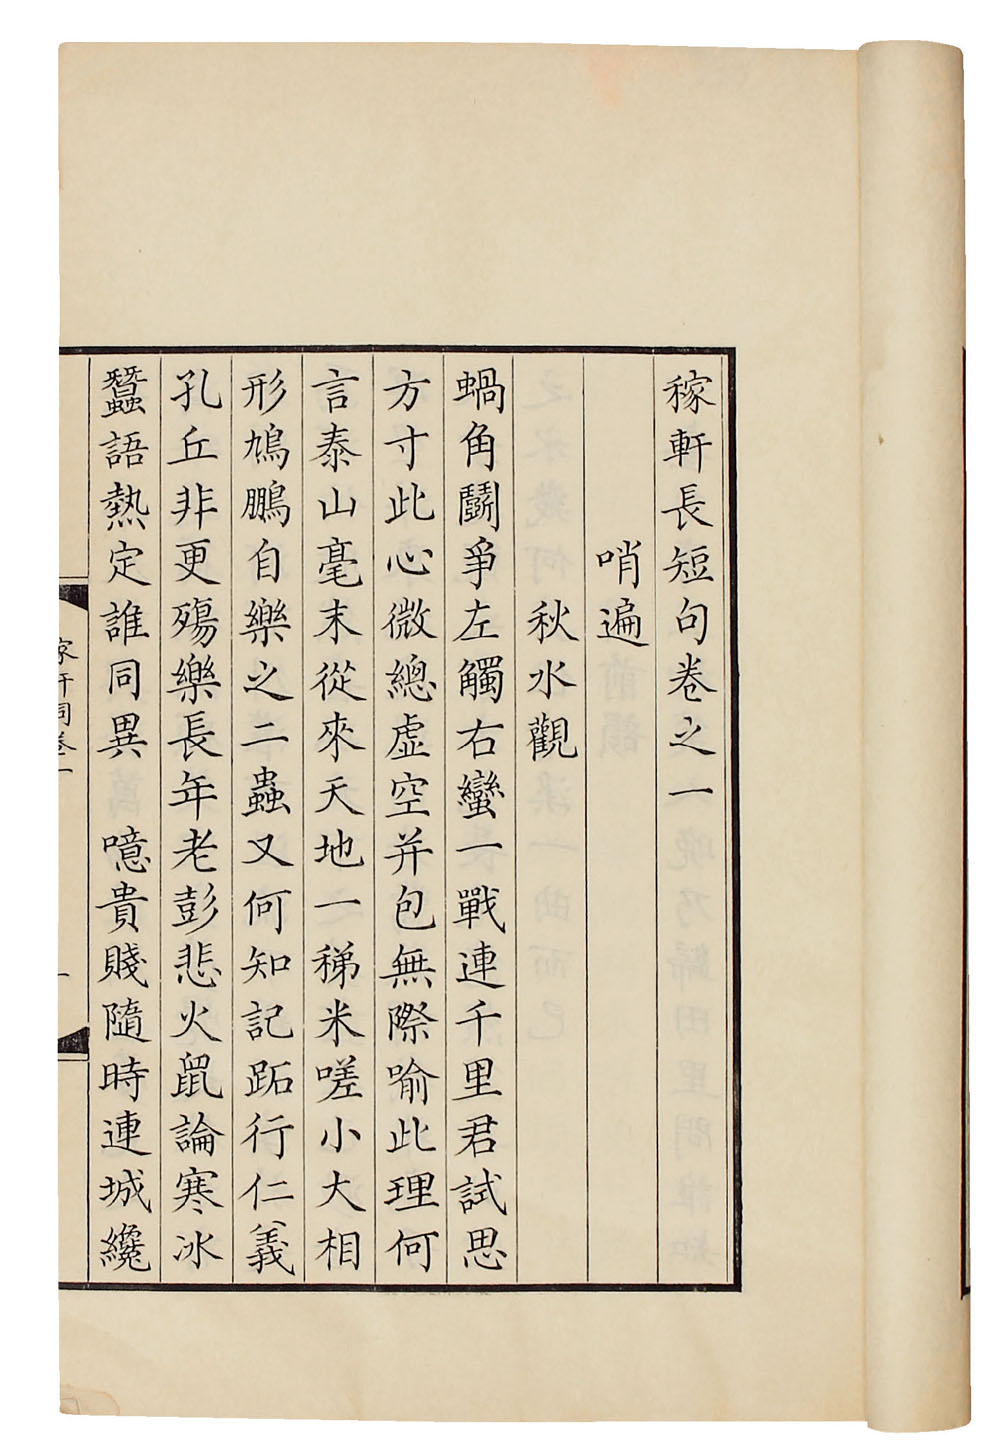 稼軒長短句卷之一
哨遍
秋水觀
蝸角鬭爭左觸右蠻一戰連千里君試思
方寸此心微總虛空并包無際喻此理何
言泰山毫末從來天地一稊米嗟小大相
形鳩鵬自樂之二蟲又何知記跖行仁義
孔丘非更殤樂長年老彭悲火鼠論寒冰
蠶語熱定誰同異　噫貴賤隨時連城纔